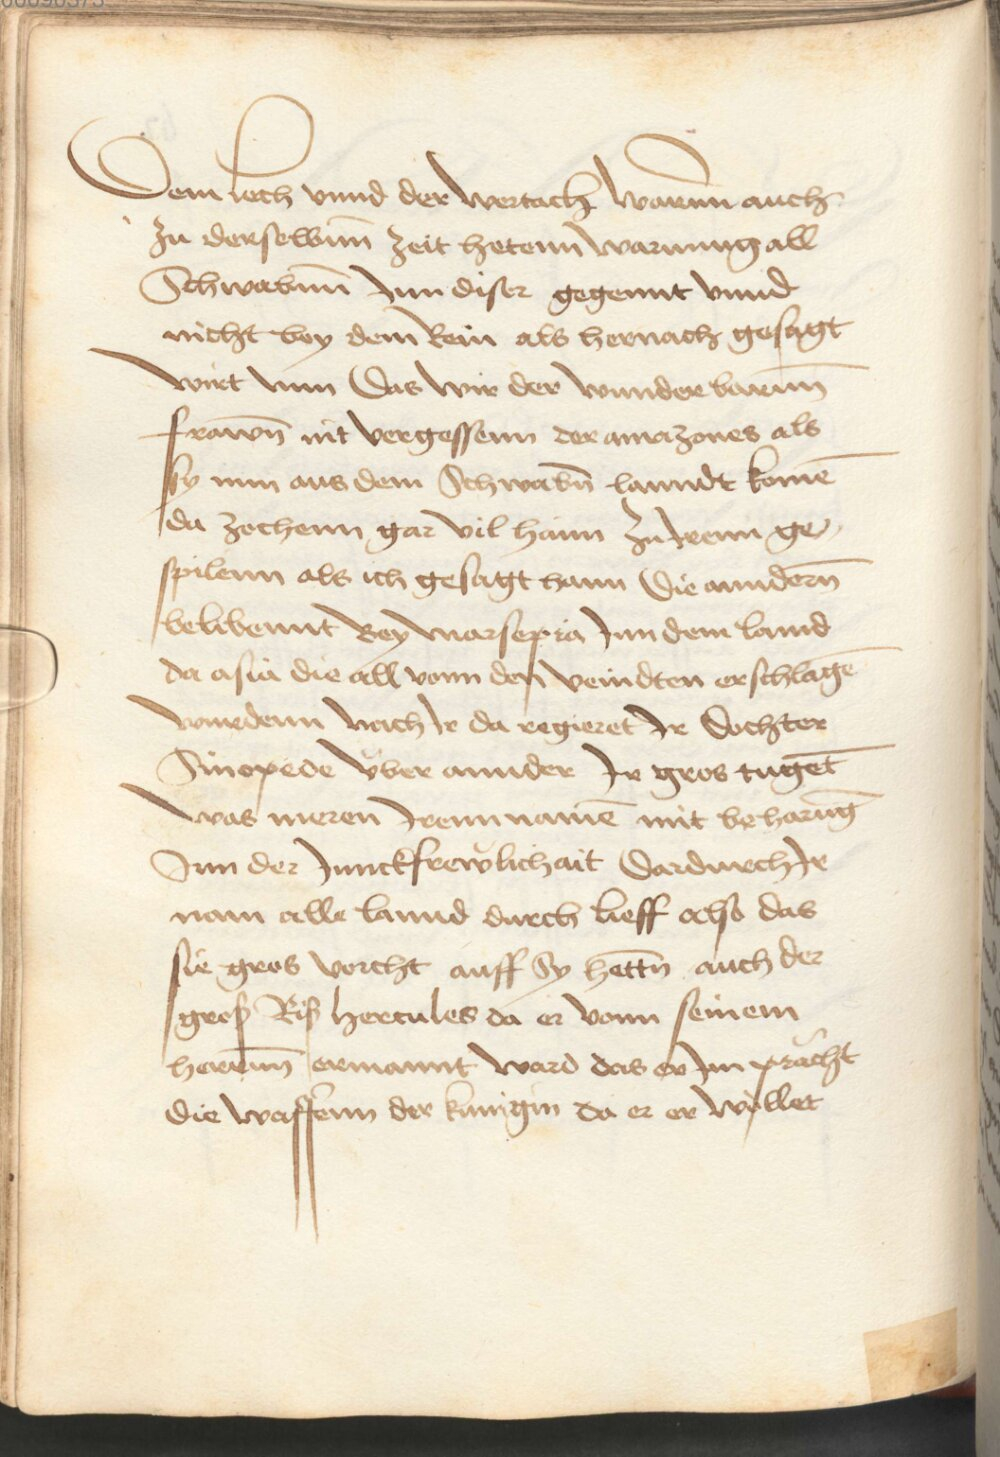 00090373
Dem lech vnnd der wertach warnn auch
zu derselbinn zeit hetenn warnung all
Schwabinn Inn diser gegennt vnnd
nicht bey dem Rein als hernach gesagt
wirt nun Das wir der wunderbarnn̄
frawn̄ nit vergessenn der amazones als
sy nun aus dem Schwabn̄ lanndt komē
da zochenn gar vil hainn zu Irenn ge
spilenn als ich gesagt hann Die anndern̄
belibennt Bey marsepia Inn dem lannd
da asia die all vonn den veindten erschlagē
wurdenn Nach Ir da regieret Ir Dochter
Sinopede vber annder Ir gros tuget̄
was meren Irenn namē mit beharunḡ
Inn der Junckfrewlichait Dardurch Ir
nam alle lannd durch lieff also das
sie gros vorcht auff sy hettn̄ auch der
groß Riß hercules da er vonn seinem
herrenn̄ ermannt ward das er Im prácht
die waffenn der kunigin da er er wóllet